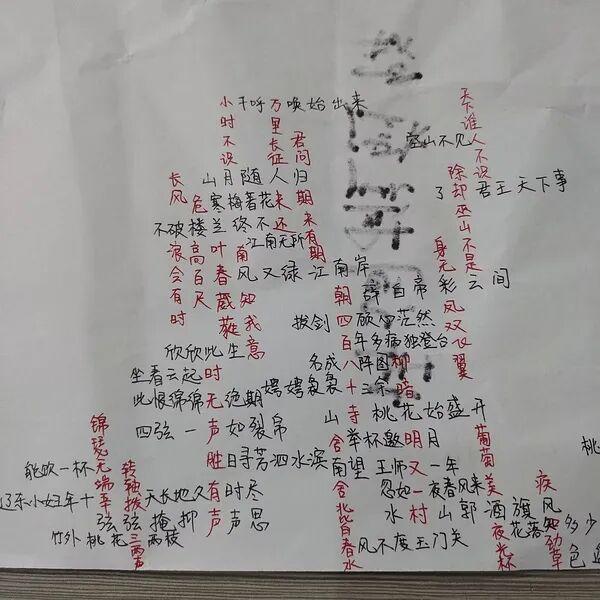 小千呼万唤始出来
时不识
里长征
君问
天下谁人不识
空山不见
除却巫山不是
了君王天下事
长风
山月随人归
危寒梅著花未期
不破楼兰终不还
江南无所有
未有期
浪会有时
高百尺
叶
南春
风又绿江南岸
身无彩云间
朝辞白帝
凤双飞翼
知我意
拔剑四顾心茫然
百年多病独登台
欣欣此生意
名成八阵图
柳暗
坐看云起时
此恨绵绵无绝期
娉娉袅袅十三余
锦瑟无端
四弦一声如裂帛
山寺桃花始盛开
举杯邀明月
葡萄美
桃
能饮一杯无
胜日寻芳泗水滨
南望王师又一年
转轴拨
辽东小妇年十五
天长地久有时尽
忽如一夜春风来
疾风知劲草
弦弦掩抑声声思
水村山郭酒旗风
花落知多少
竹外桃花三两枝
三两声
舍南舍北皆春水
春风不度玉门关
夜光杯
色